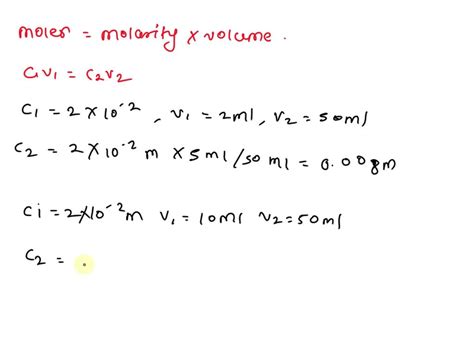 moler = molarity x volume .
C1V1 = C2V2
C1 = 2 X 10^-2 , V1 = 2ml , V2 = 50ml
C2 = 2 X 10^-2 m X 5ml / 50 ml = 0.008m
Ci = 2X10^-2 m V1 = 10ml V2 = 50ml
C2 =